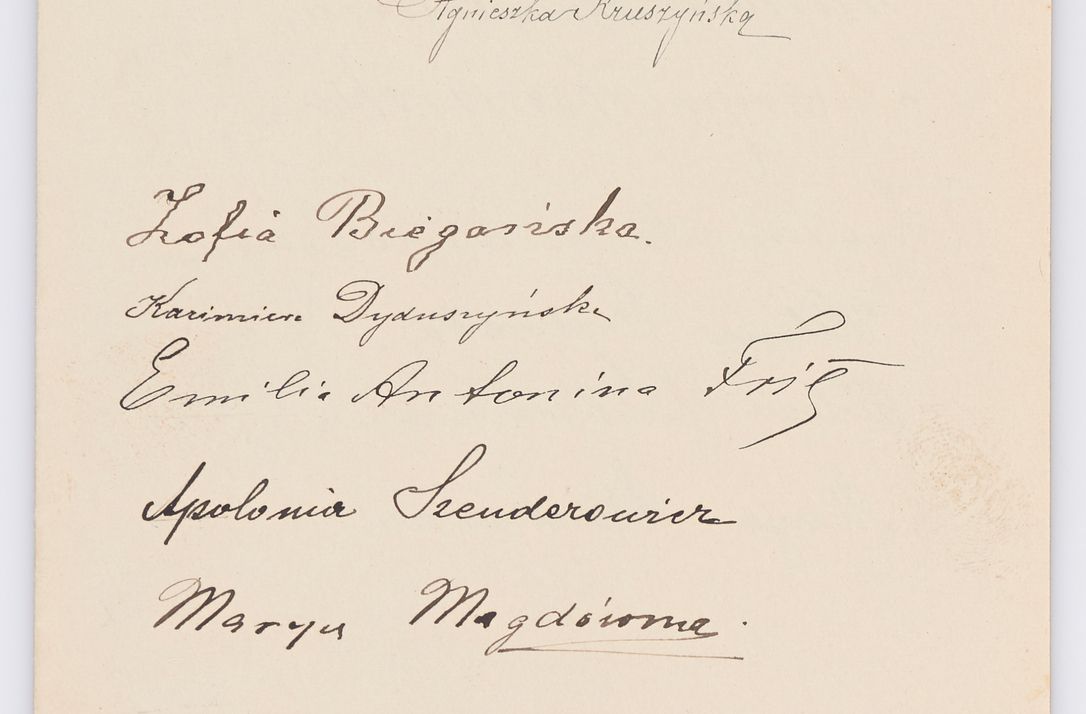 Agnieszka Kruszyńska
Zofia Biegańska.
Kazimiera Dyduszyńska
Emilia Antonina Fritz
Apolonia Szenderowicz
Marya Magdówna.